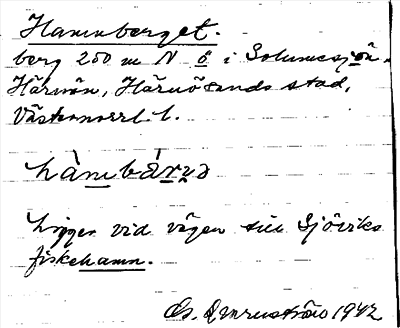 Hamnberget.
berg 200 m N ö i Solumssjön.
Härnön, Härnösands stad,
Västernorrl. l.
hàmbárȷə
Ligger vid vägen till Sjöviks
fiskehamn.
1942